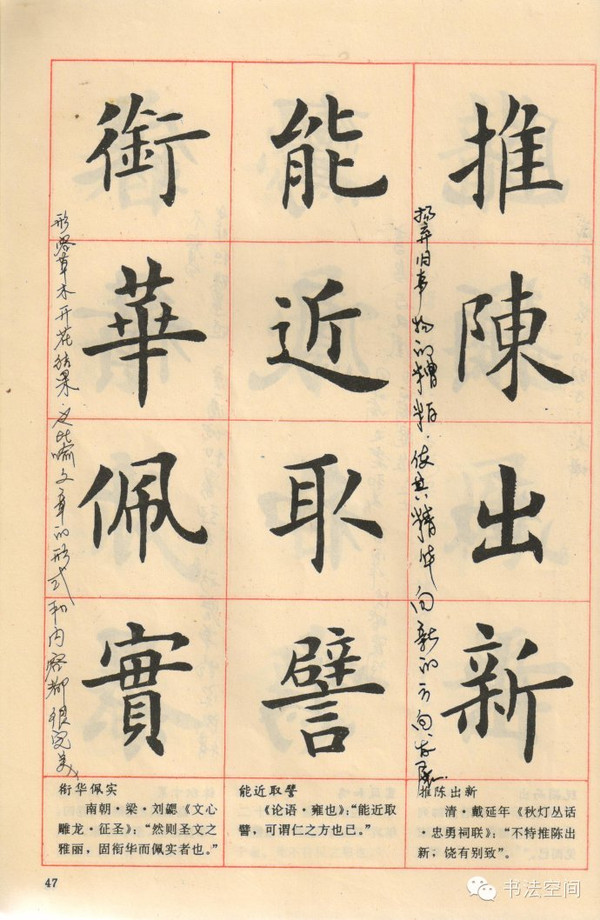 推陳出新
扬弃旧事物的糟粕，使其精华向新的方向发展
能近取譬
銜華佩實
形容草木开花结果 也比喻文章的形式和内容都很完美
推陈出新
清·戴延年《秋灯丛话
·忠勇祠联》：“不特推陈出
新，饶有别致”。
能近取譬
《论语·雍也》：“能近取
譬，可谓仁之方也已。”
衔华佩实
南朝·梁·刘勰《文心
雕龙·征圣》：“然则圣文之
雅丽，固衔华而佩实者也。”
47
书法空间